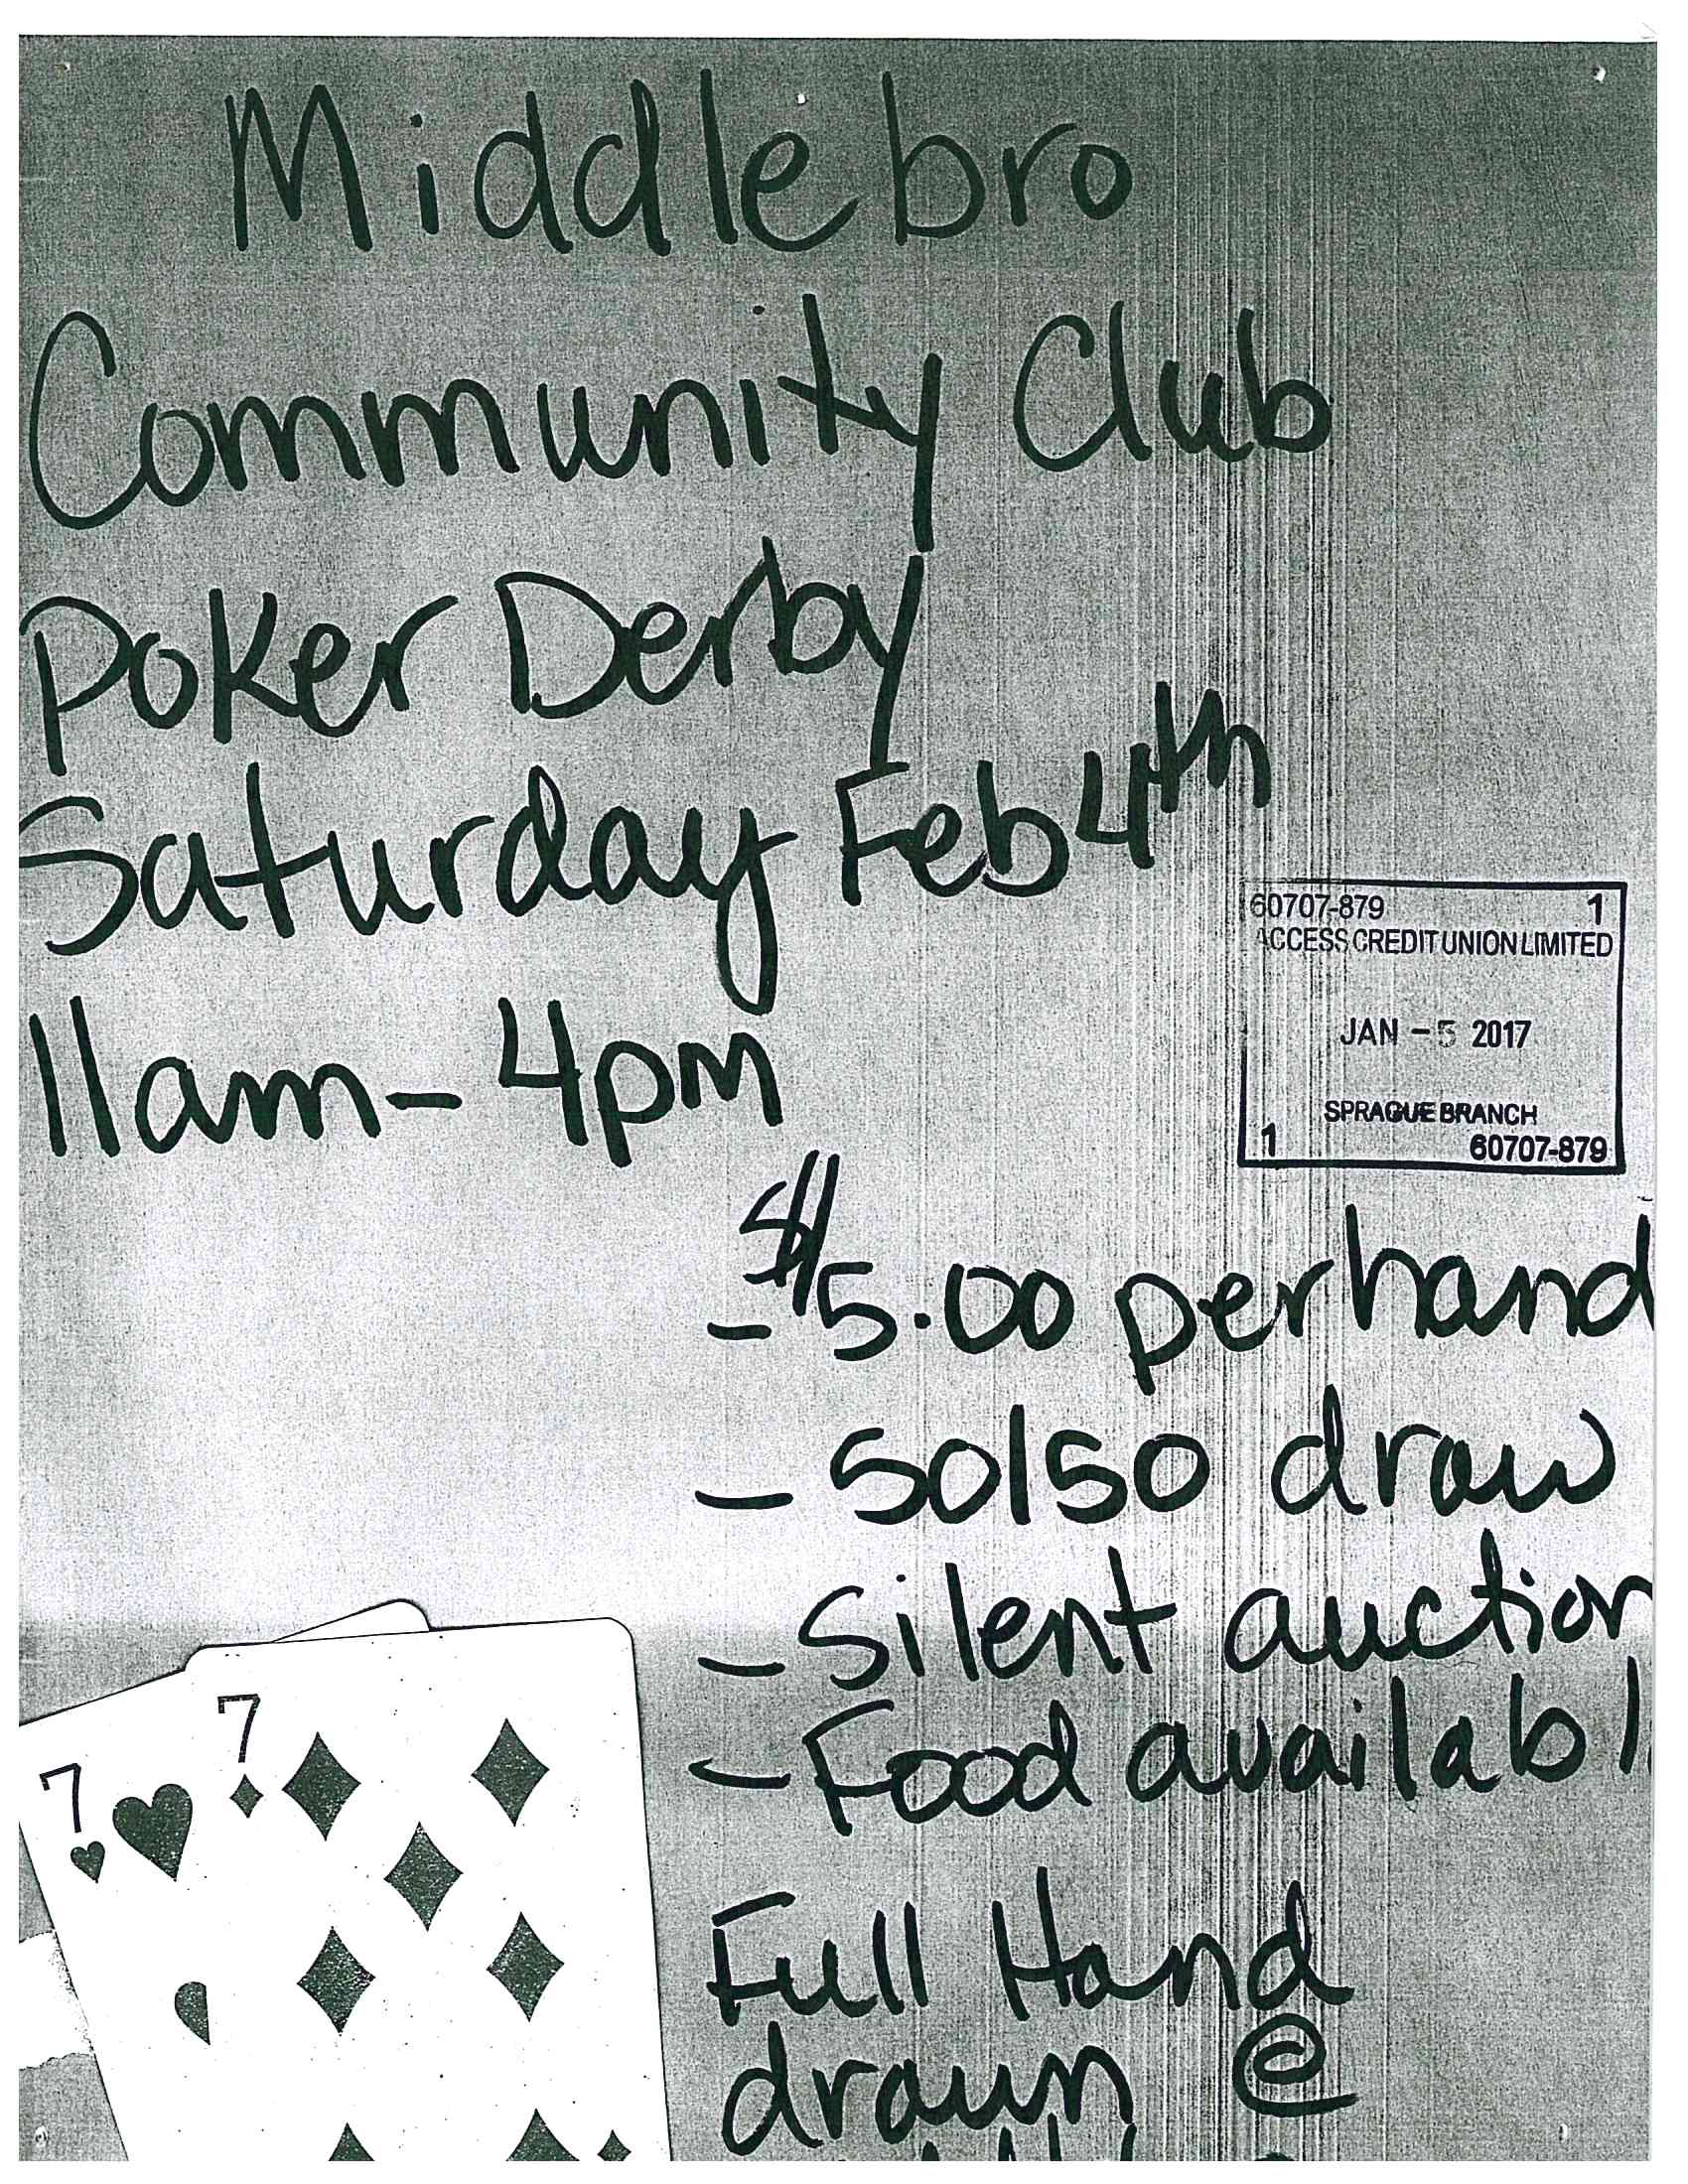 Middlebro
Community Club
Poker Derby
Saturday Feb 4th
11am - 4pm
60707-879 1
ACCESS CREDIT UNION LIMITED
JAN - 5 2017
SPRAGUE BRANCH
1 60707-879
- $5.00 per hand
- 50/50 draw
- Silent auction
- Food availabl
7
7
Full Hand
drawn @